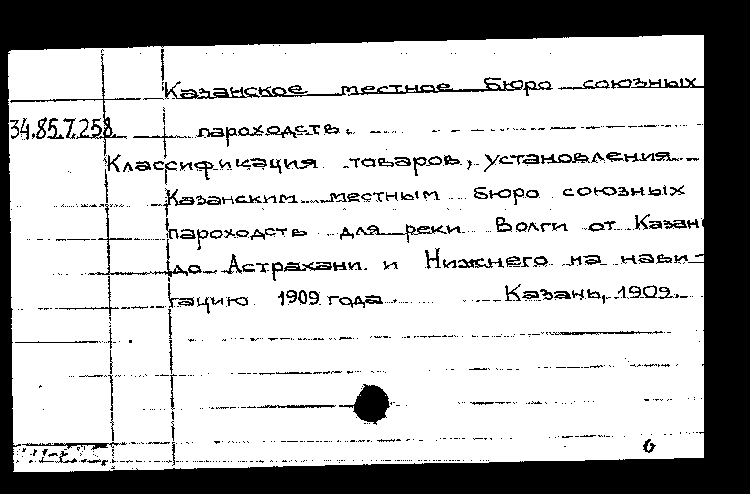 Казанское местное бюро союзных
34.85.7.258 пароходств.
Классификация товаров, установления
Казанским местным бюро союзных
пароходств для реки Волги от Казани
до Астрахани и Нижнего на нави-
гацию 1909 года. Казань, 1909.
6